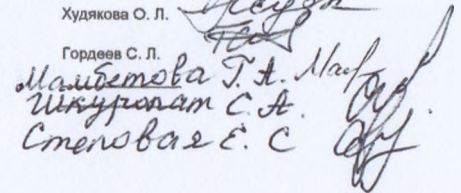 Худякова О. Л.
Гордеев С. Л.
Мамбетова Г. А.
Шкуропат С. А.
Степовая Е. С